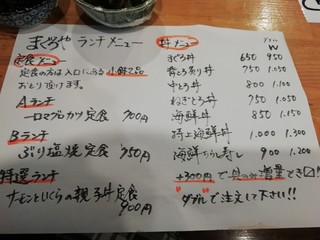 まぐろや ランチメニュー
定食メニュー
定食の方は入口にある小鉢2品
お とり頂けます。
Aランチ
マグロカツ定食 700円
Bランチ
ぶり塩焼定食 750円
特選ランチ
サーモンといくらの親子丼定食
900円
丼メニュー
W
まぐろ丼 650 950
750 1.050
中とろ丼 800 1.100
ねぎとろ丼 750 1.050
海鮮丼 850 1.150
特上海鮮丼 1.000 1.300
海鮮ちらし寿し 900 1.200
+300円で具のみ増量でき
"ダブル"で注文して下さい!!